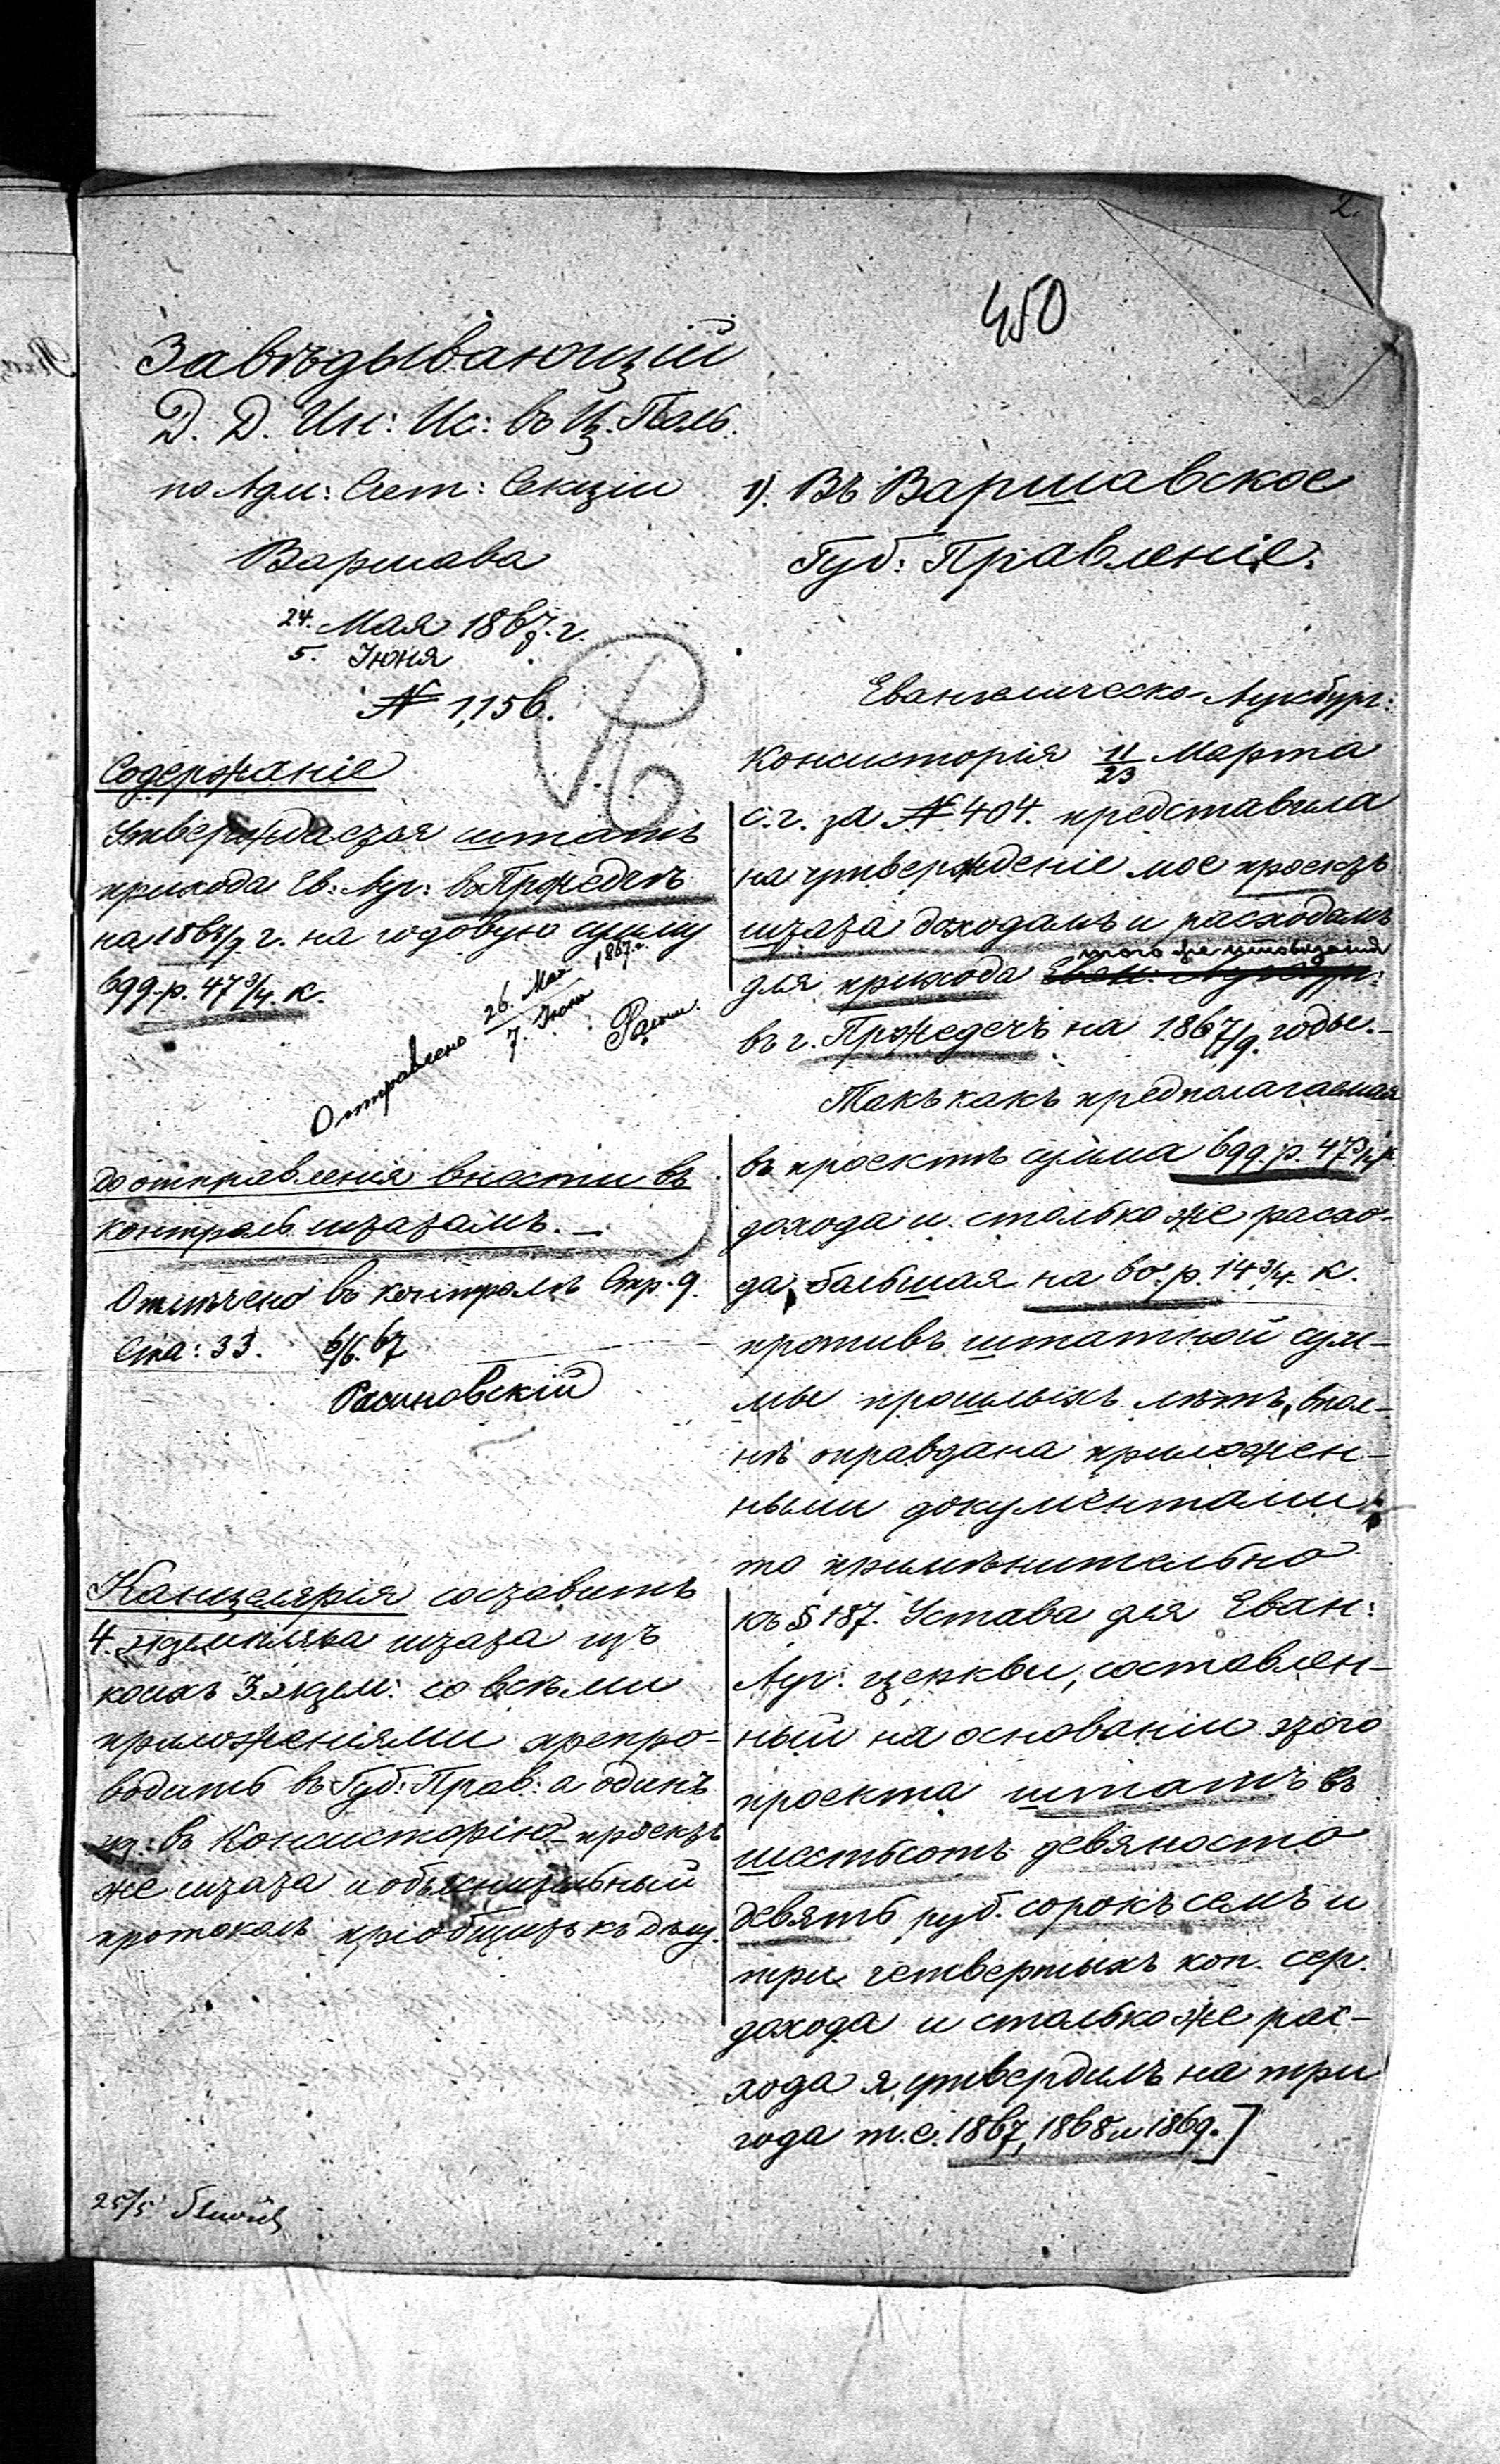 2.
450
Завѣдывающій
Д. Д. Ин: Ис: въ Ц. Поль.
по Адм: Счет: Секціи
Варшава
24. Мая 1867. г.
5. Іюня
№ 1,156.
Содержаніе
Утверждается штатъ
прихода Ев: Ауг: въ Пржедечѣ
на 1867/9 г. на годовую сумму
699. р. 47 3/4. к.
Отправлено 26. Мая 1867. г.
7. Іюня
До отправленія внести въ
контроль штатамъ. —
Отмѣчено въ контролѣ Стр. 9.
Ста: 33. 6/6. 67
Расиновскій
Канцелярія составитъ
4. экземпляра штата изъ
коихъ 3. экзем: со всѣми
приложеніями препро-
водитъ въ Губ: Прав: а одинъ
экз: въ Консисторію – проектъ
же штата и объяснительный
протоколъ пріобщить къ дѣлу.
25/5
1). Въ Варшавское
Губ: Правленіе.
Евангелическо-Аугсбург:
Консисторія 11/23 Марта
с. г. за № 404. представила
на утвержденіе мое проектъ
штата доходамъ и расходамъ
того же исповѣданія
для прихода Еван: Аугсбур:
въ г. Пржедечъ на 1867/9. годы. –
Такъ какъ предполагаемая
въ проектѣ сумма 699. р. 47 3/4 к.
дохода и столько же расхо-
да, большая на 60. р. 14 3/4. к.
противъ штатной сум-
мы прошлыхъ лѣтъ, впол-
нѣ оправдана приложен-
ными документами,
то примѣнительно
къ § 187. Устава для Еван:
Ауг: церкви, составлен-
ный на основаніи этого
проекта штатъ въ
шестьсотъ девяносто
девять руб. сорокъ семъ и
три четвертыхъ коп. сер.
дохода и столько же рас-
хода я утвердилъ на три
года т. е. 1867, 1868 и 1869. ]